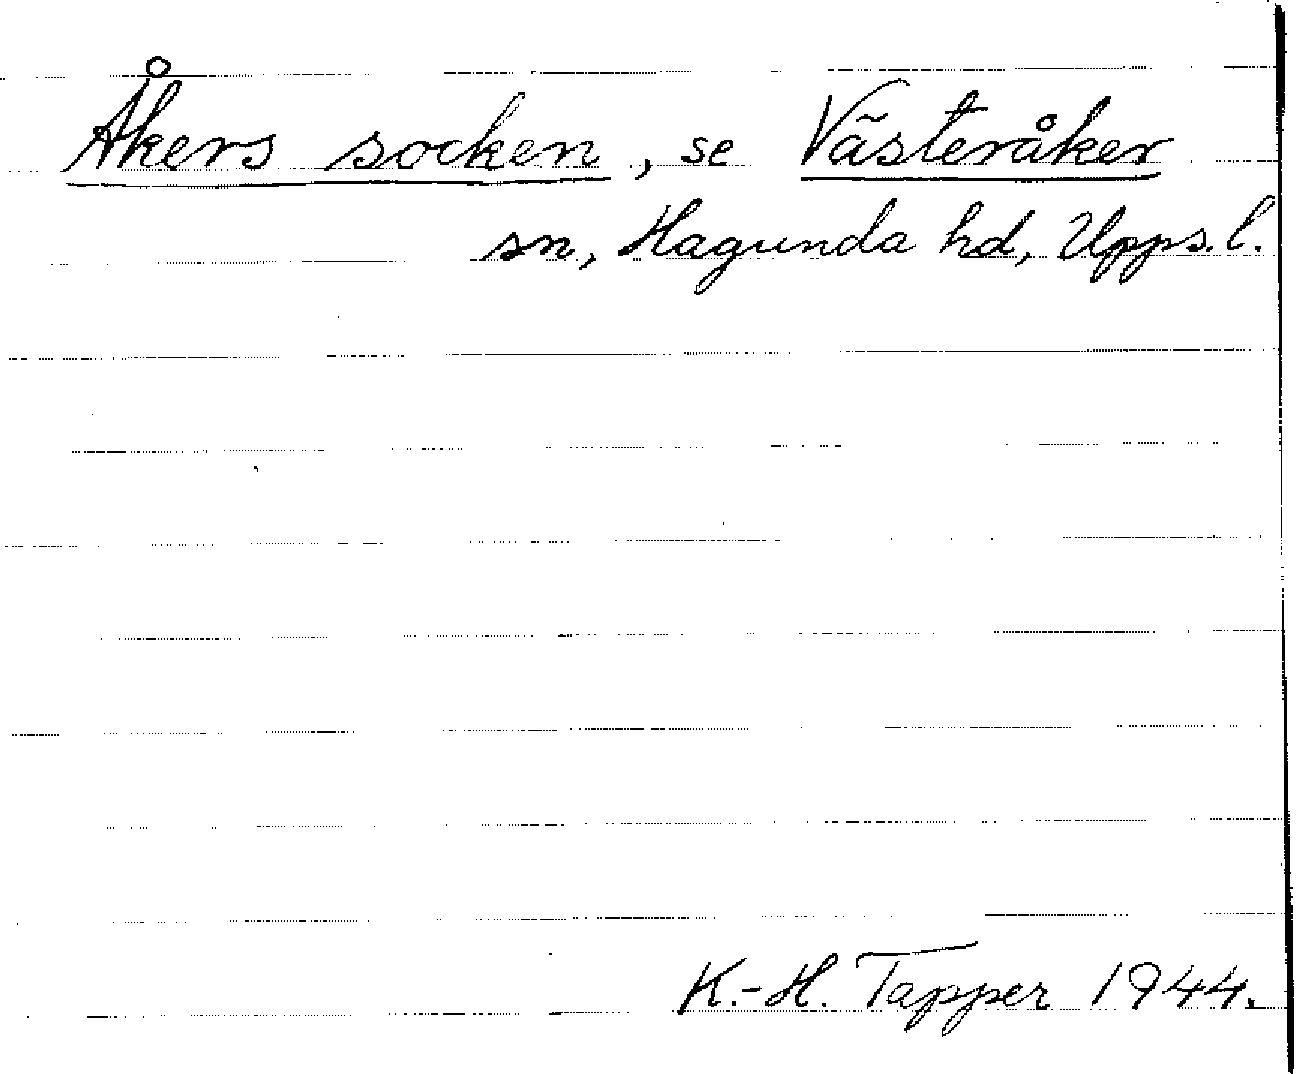 Åkers socken, se Västeråker
sn, Hagunda hd, Upps. l.
K.-H. Tapper 1944.